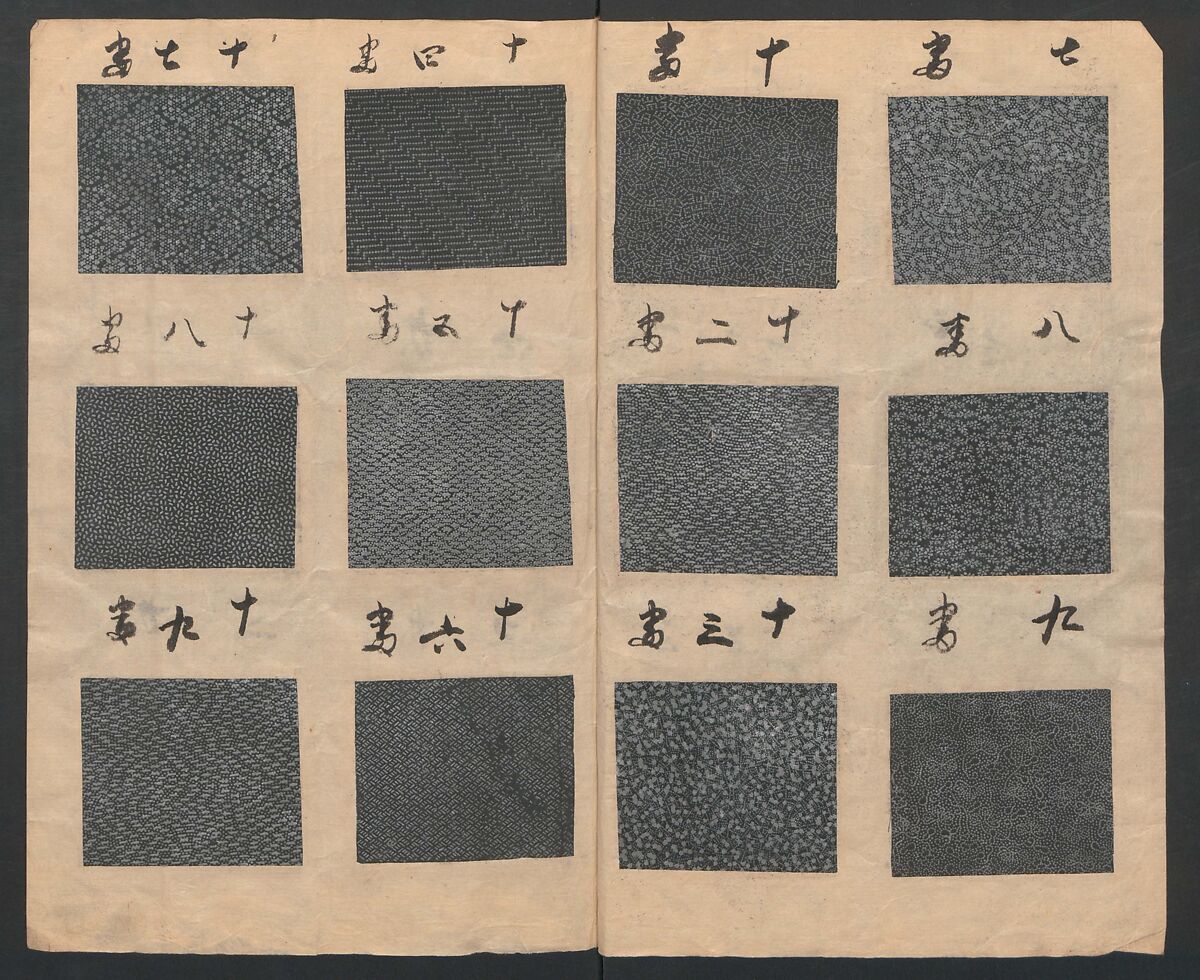 七番
八番
九番
十番
十二番
十三番
十四番
十五番
十六番
十七番
十八番
十九番